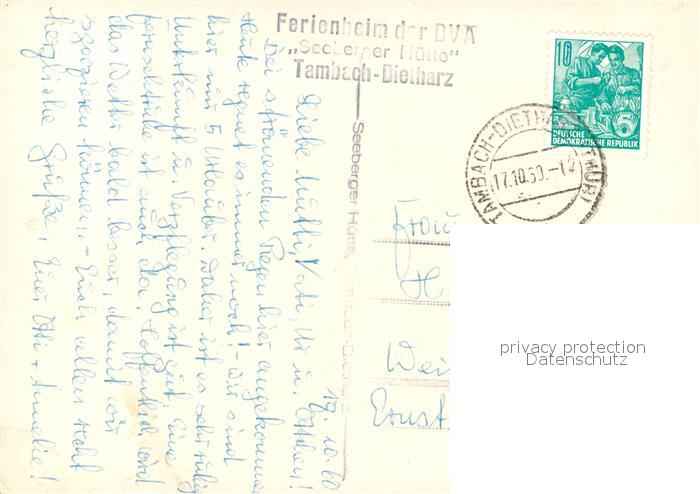 Ferienheim der DVA
"Seeberger Hütte"
Tambach-Dietharz
10
DEUTSCHE
DEMOKRATISCHE REPUBLIK
TAMBACH-DIETHARZ (THÜR)
17.10.60.-12
Seeberger Hütte, Tambach-Dietharz
19.10.60
Liebe Mutti, Vati, Ur u.
Bei strömenden Regen hier angekommen.
Heute regnet es immer noch! - Wir sind
hier nur 5 Urlauber. Daher ist es sehr ruhig.
Unterkunft u. Verpflegung ist gut. Eine
Fernsehtruhe ist auch da. Hoffentlich wird
das Wetter bald besser, damit wir
spazieren können. - Euch allen recht
herzliche Grüße, Eure Otti + Amelie!
Frau
H
Wei
Ernst
privacy protection
Datenschutz